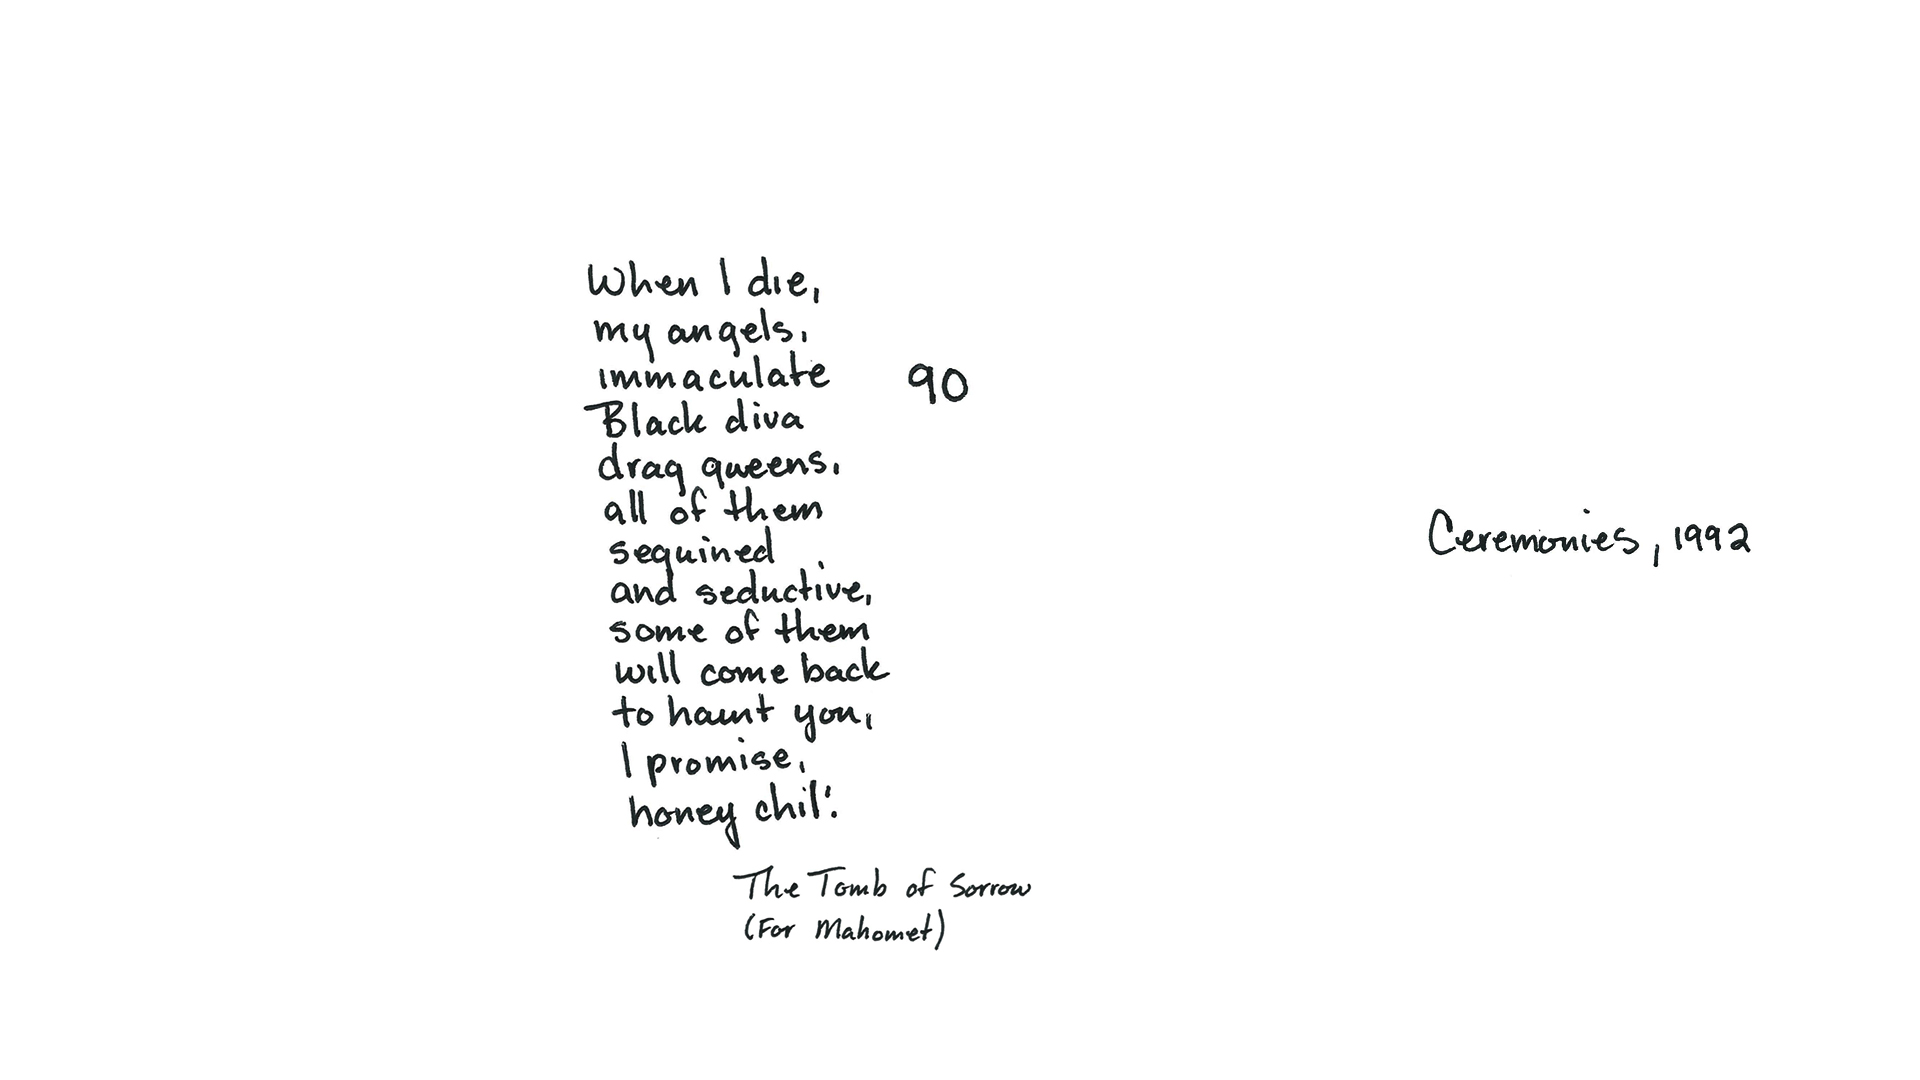 When I die,
my angels,
immaculate
Black diva
drag queens,
all of them
sequined
and seductive,
some of them
will come back
to haunt you,
I promise,
honey chil'.
90
The Tomb of Sorrow
(For Mahomet)
Ceremonies, 1992